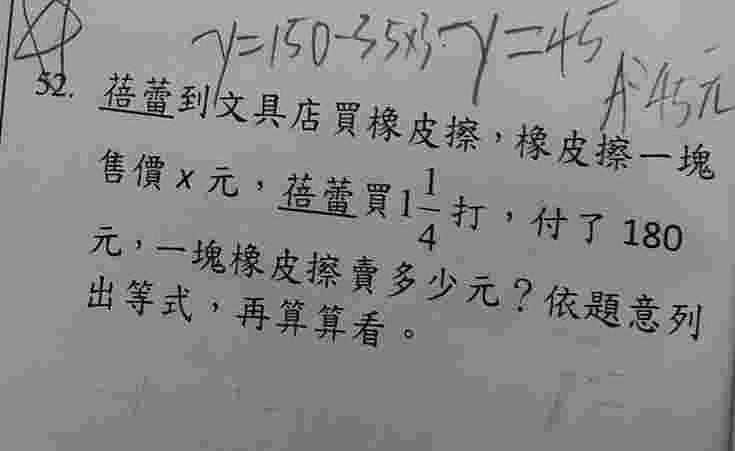 y=150-35x3 y=45
A:45元
52. 蓓蕾到文具店買橡皮擦，橡皮擦一塊
售價 x 元，蓓蕾買1 1/4 打，付了 180
元，一塊橡皮擦賣多少元？依題意列
出等式，再算算看。